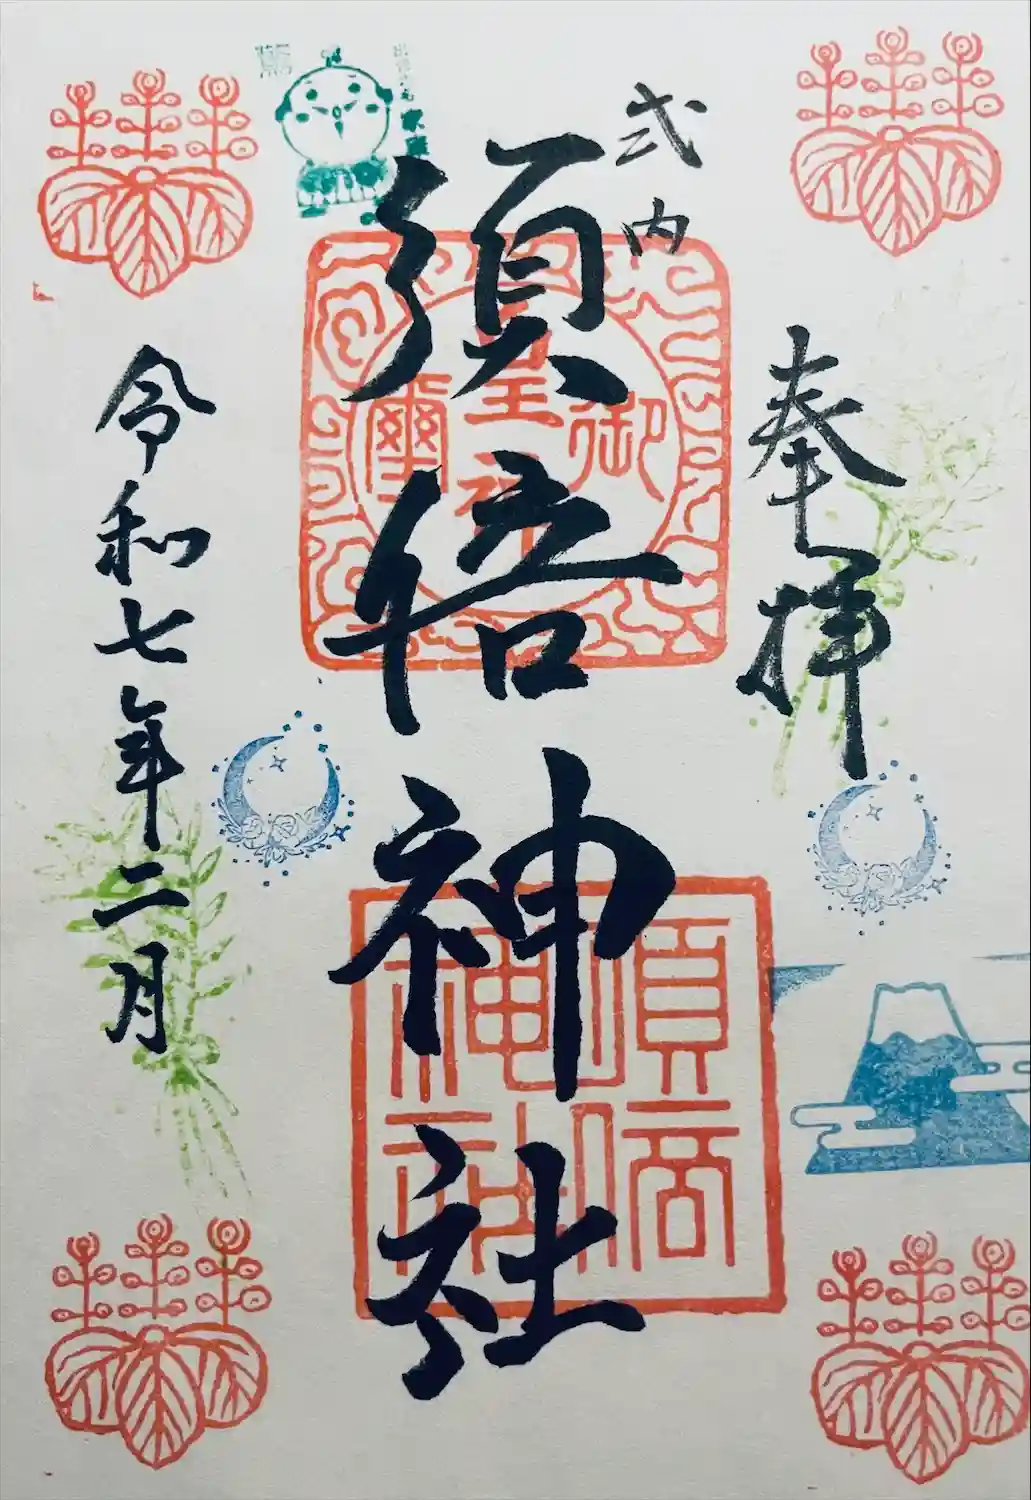 式内
奉拝
須倍神社
令和七年二月
皇御神璽
須倍神社